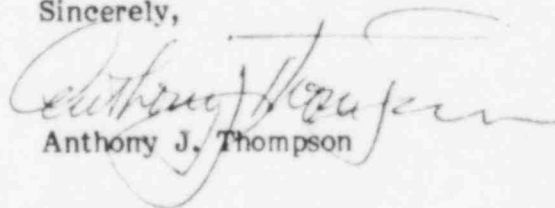 Sincerely,
Anthony J. Thompson
Anthony J. Thompson